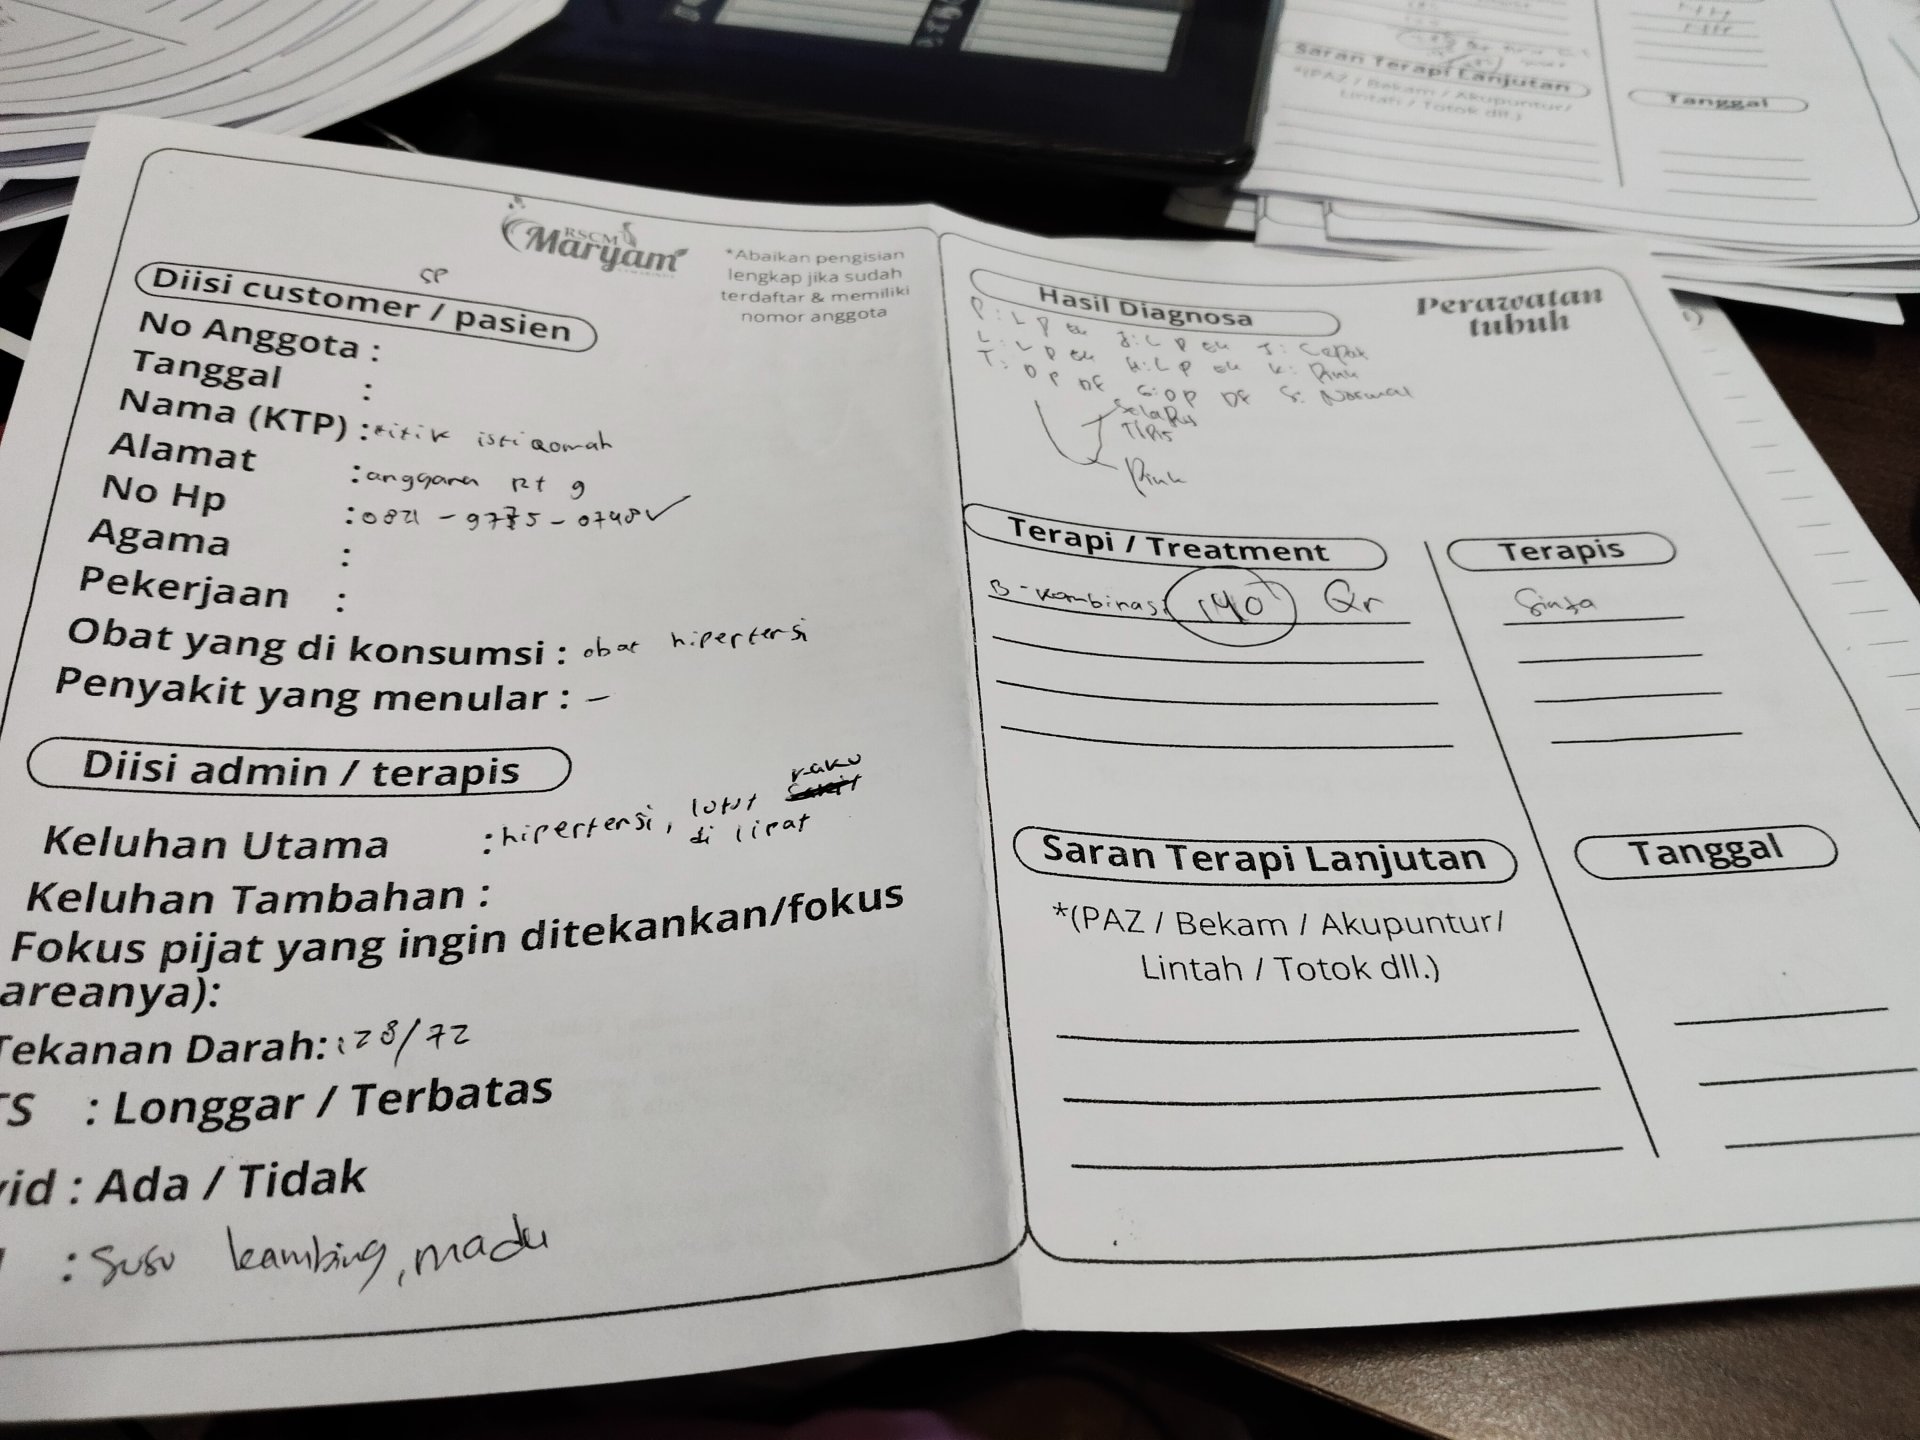 RSCM
Maryam
*Abaikan pengisian
lengkap jika sudah
terdaftar & memiliki
nomor anggota
SP
Diisi customer / pasien
No Anggota :
Tanggal :
Nama (KTP) : titik istiqomah
Alamat : anggana Rt 9
No Hp : 0821 - 9775 - 0748 ✓
Agama :
Pekerjaan :
Obat yang di konsumsi : obat hipertensi
Penyakit yang menular : -
Diisi admin / terapis
Keluhan Utama : hipertensi, lutut kaku
di lipat
Keluhan Tambahan :
Fokus pijat yang ingin ditekankan/fokus
areanya):
Tekanan Darah: 128/72
TS : Longgar / Terbatas
id : Ada / Tidak
: Susu kambing, madu
Hasil Diagnosa
Perawatan
tubuh
P : L P J : L P I : Cepat
L : L P H : L P K : Pink
T : D P DF G : D P DF S : Normal
Selaput
Tipis
Pink
Terapi / Treatment
Terapis
B - kombinasi 140 Qr
Sinta
Saran Terapi Lanjutan
Tanggal
*(PAZ / Bekam / Akupuntur/
Lintah / Totok dll.)
Saran Terapi Lanjutan
*(PAZ / Bekam / Akupuntur/
Lintah / Totok dll.)
Tanggal